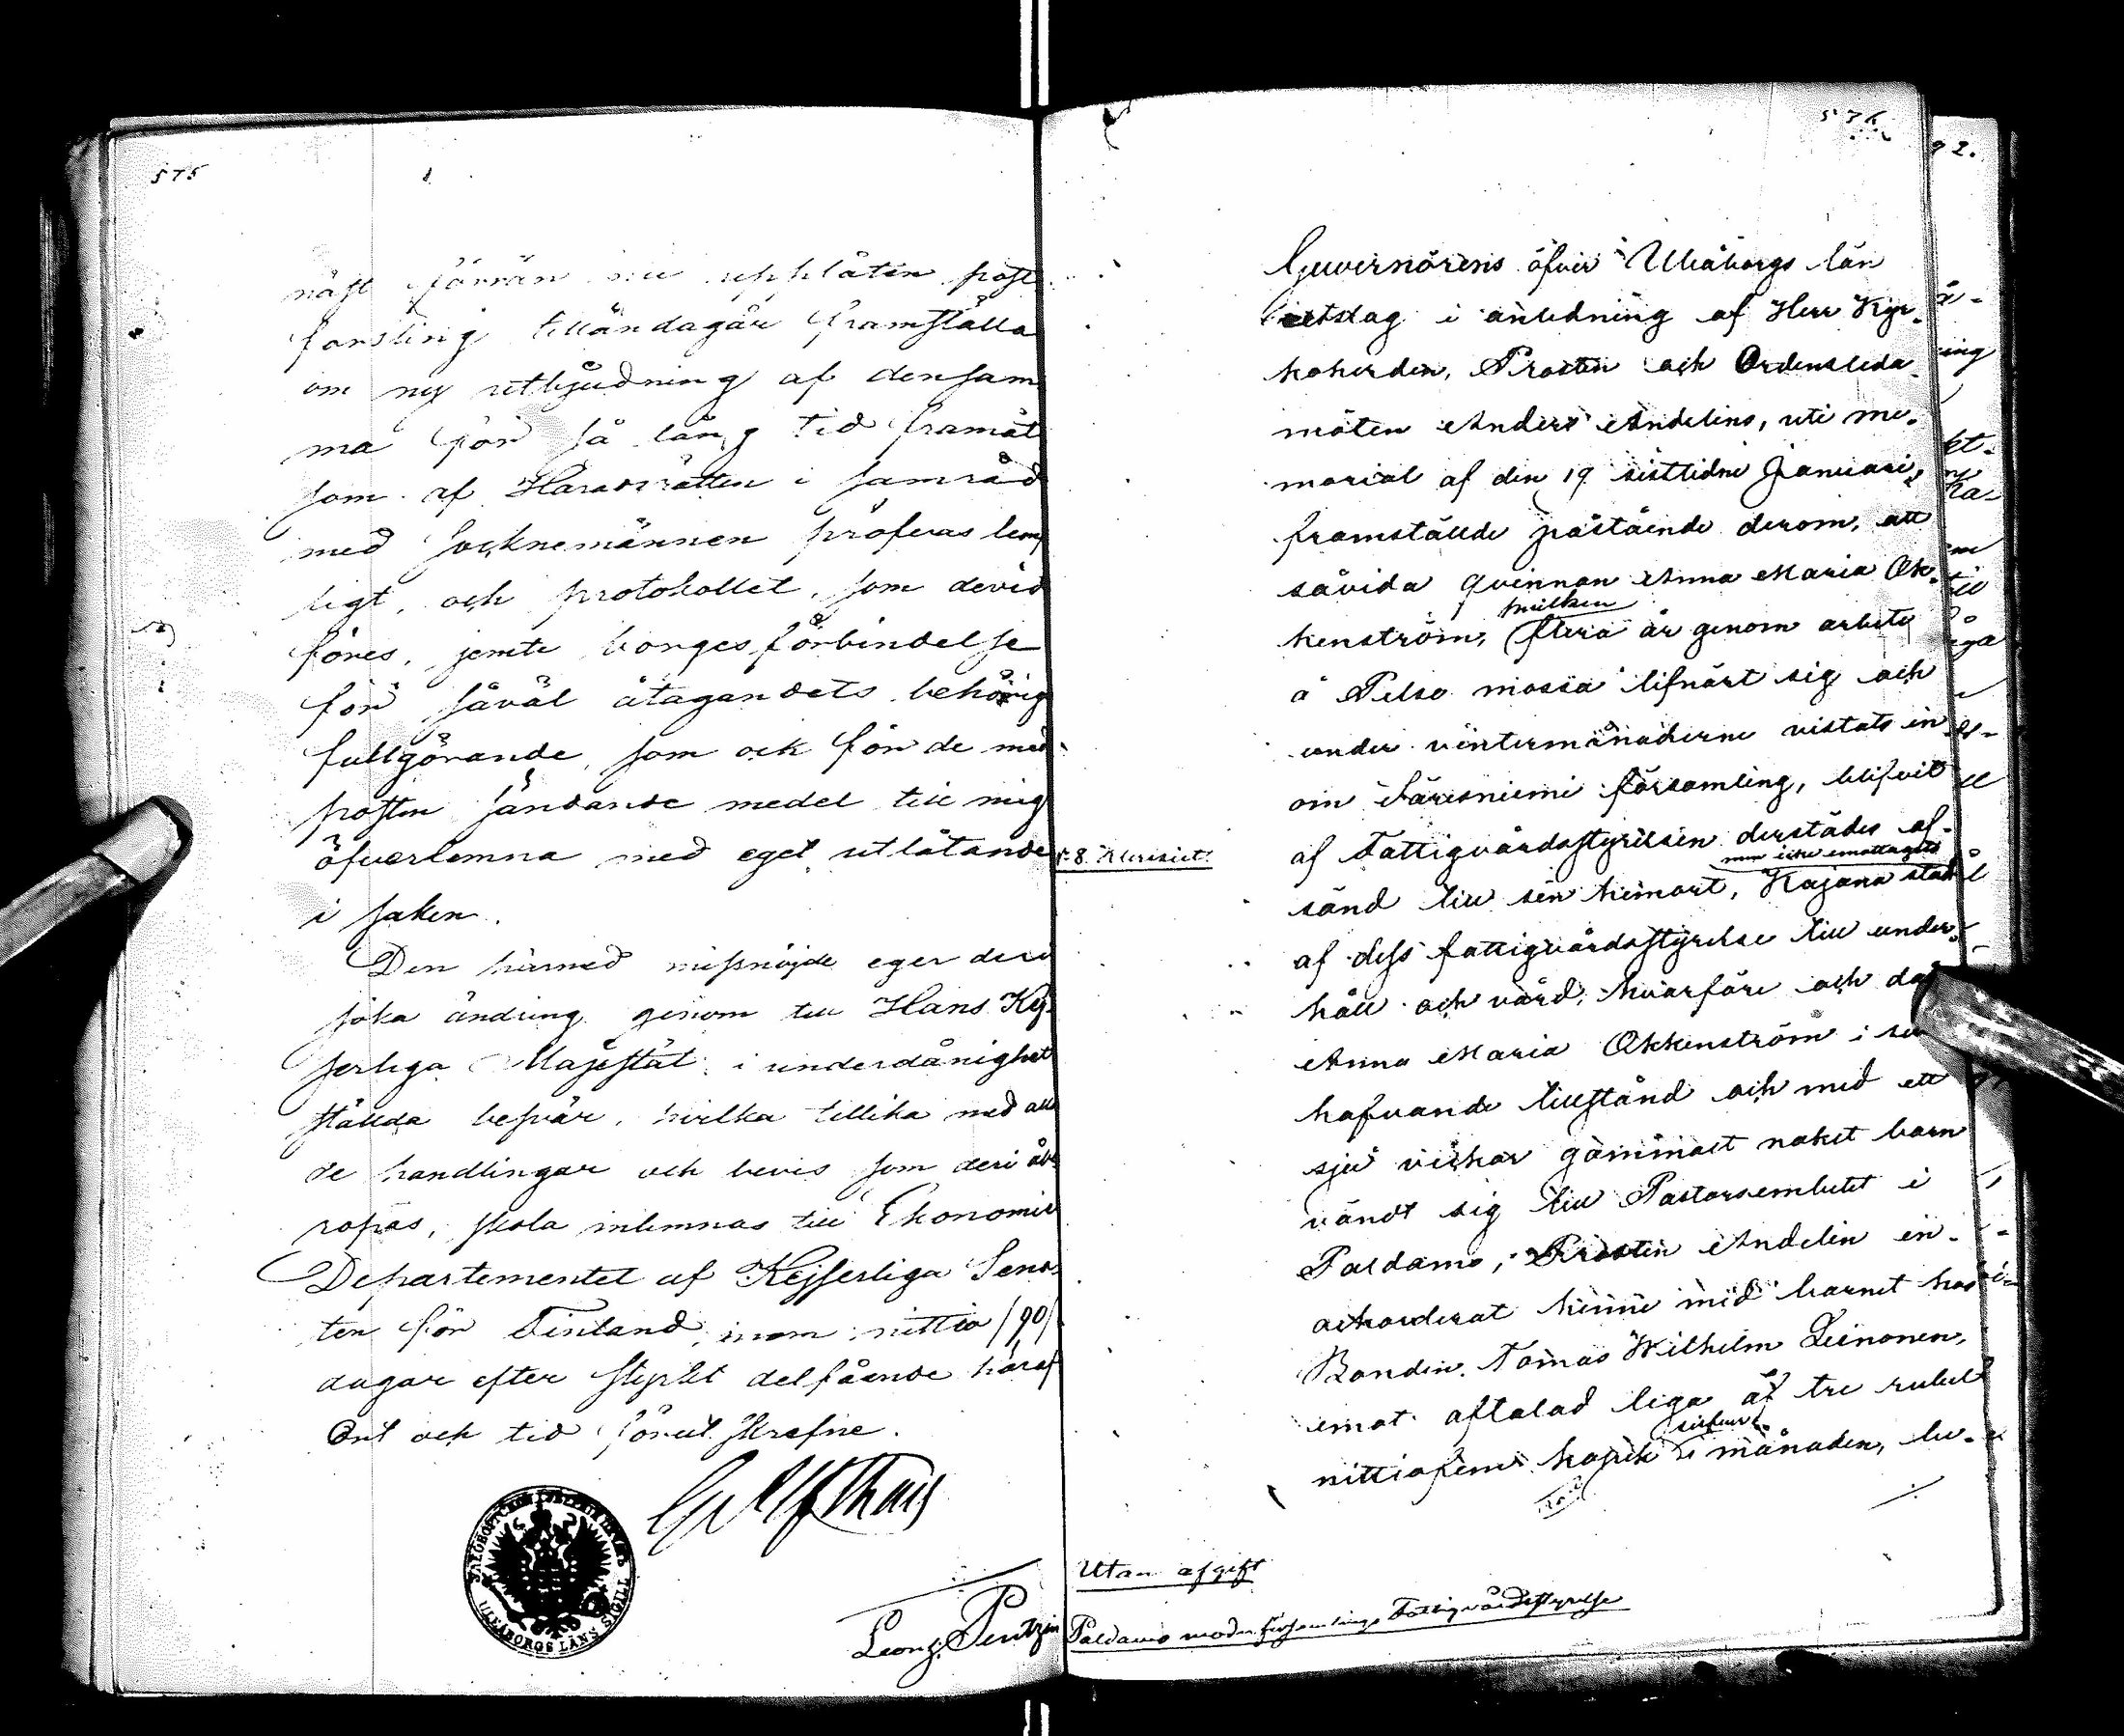 575
näst förrän nu upplåten post
forsling tilländagår framställa
om ny utbjudning af densam
ma för så lång tid framåt
som af Häradsrätten i samråd
med socknemännen pröfvas lämp
ligt, och protokollet, som dervid
föres, jemte borgesförbindelse
för såväl åtagandets behörig
fullgörande, som ock för de med
posten sändande medel till mig
öfverlemna med eget utlåtande
i saken.
Den härmed missnöjde eger deri
söka ändring genom till Hans Kej
serliga Majestät i underdånighet
stälda besvär, hvilka tillika med alla
de handlingar och bevis som deri åbe
ropas, skola inlemnas till Ekonomie
Departementet af Kejserliga Sena
ten för Finland inom nittio /90/
dagar efter skyldt delfående häraf
Ort och tid förut skrefne.
ULEÅBORGS LÄNS SIGILL
576
Guvernörens öfver Uleåborgs län
utslag i anledning af Herr Kyr-
koherden, Prosten och Ordensleda-
möten Anders Andelins, uti me-
morial af den 19 sistlidne Januari,
framstälde påstående derom, att
såvida qvinnan Anna Maria Ok-
hvilken
kenström, flera år genom arbete
å Pelso mossa lifnärt sig och
under vintermånaderne vistats in
om Säresniemi församling, blifvit
af Fattigvårdsstyrelsen derstädes af-
men icke emottagits
sänd till sin hemort, Kajana stad
af dess fattigvårdsstyrelse till under-
håll och vård, hvarföre och då
Anna Maria Okkenström i sitt
hafvande tillstånd och med ett
sju veckor gammalt naket barn
vändt sig till Pastorsembetet i
Paldamo, Prosten Andelin in-
ackorderat henne med barnet hos
Bonden Tomas Wilhelm Leinonen,
emot aftalad lega af tre rubel
nittiofem kopek i månaden, be-
Utan afgift
Paldamo moderförsamlings Fattigvårdsstyrelse